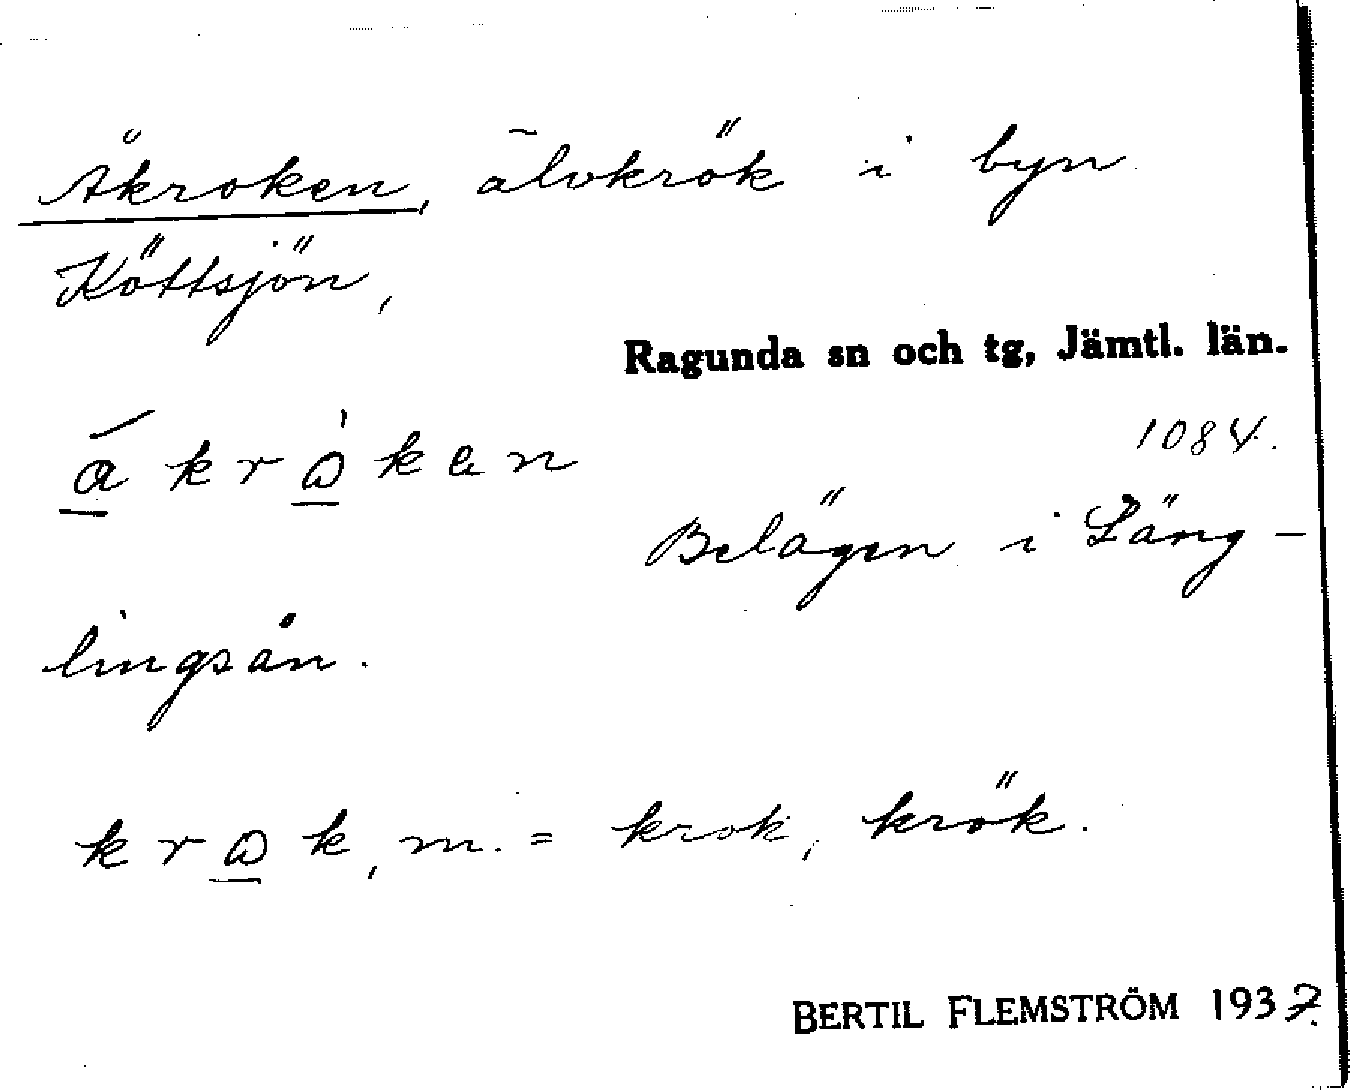 Åkroken, älvkrök i byn
Köttsjön,
Ragunda sn och tg, Jämtl. län.
1084.
Belägen i Läng-
lingsån.
m. = krok, krök.
BERTIL FLEMSTRÖM 1937.